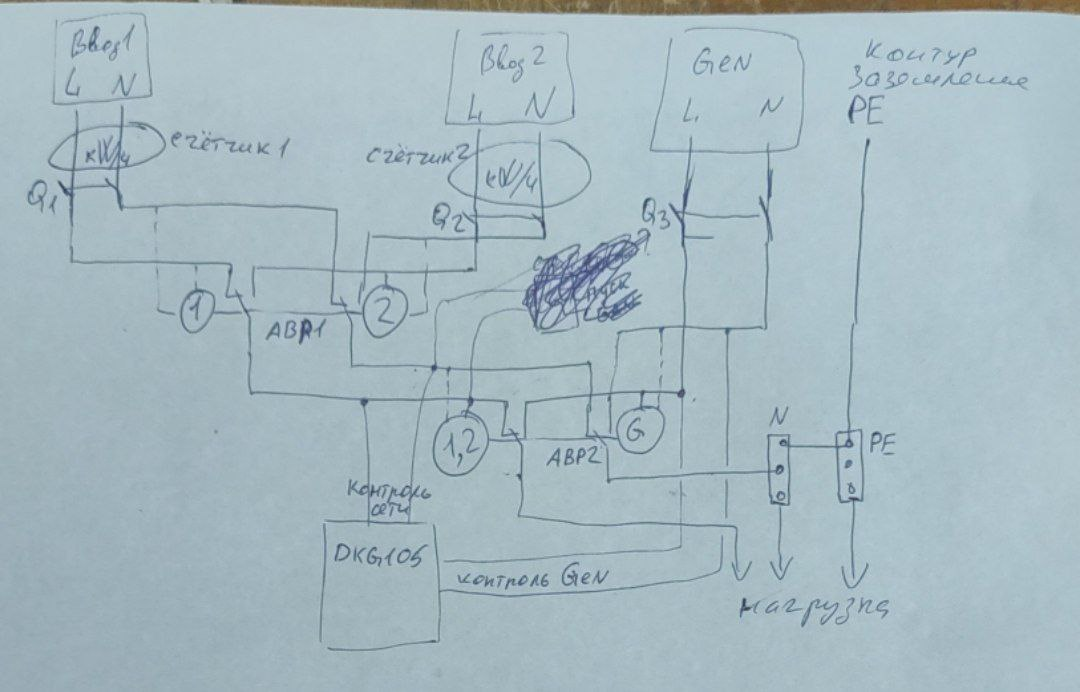 Ввод1
L N
кW/ч
счётчик1
Q1
Ввод2
L N
счётчик2
кW/ч
Q2
GeN
L N
Q3
контур
заземление
PE
1
АВР1
2
1,2
АВР2
G
N
PE
Контроль
сети
DKG105
контроль GeN
нагрузка